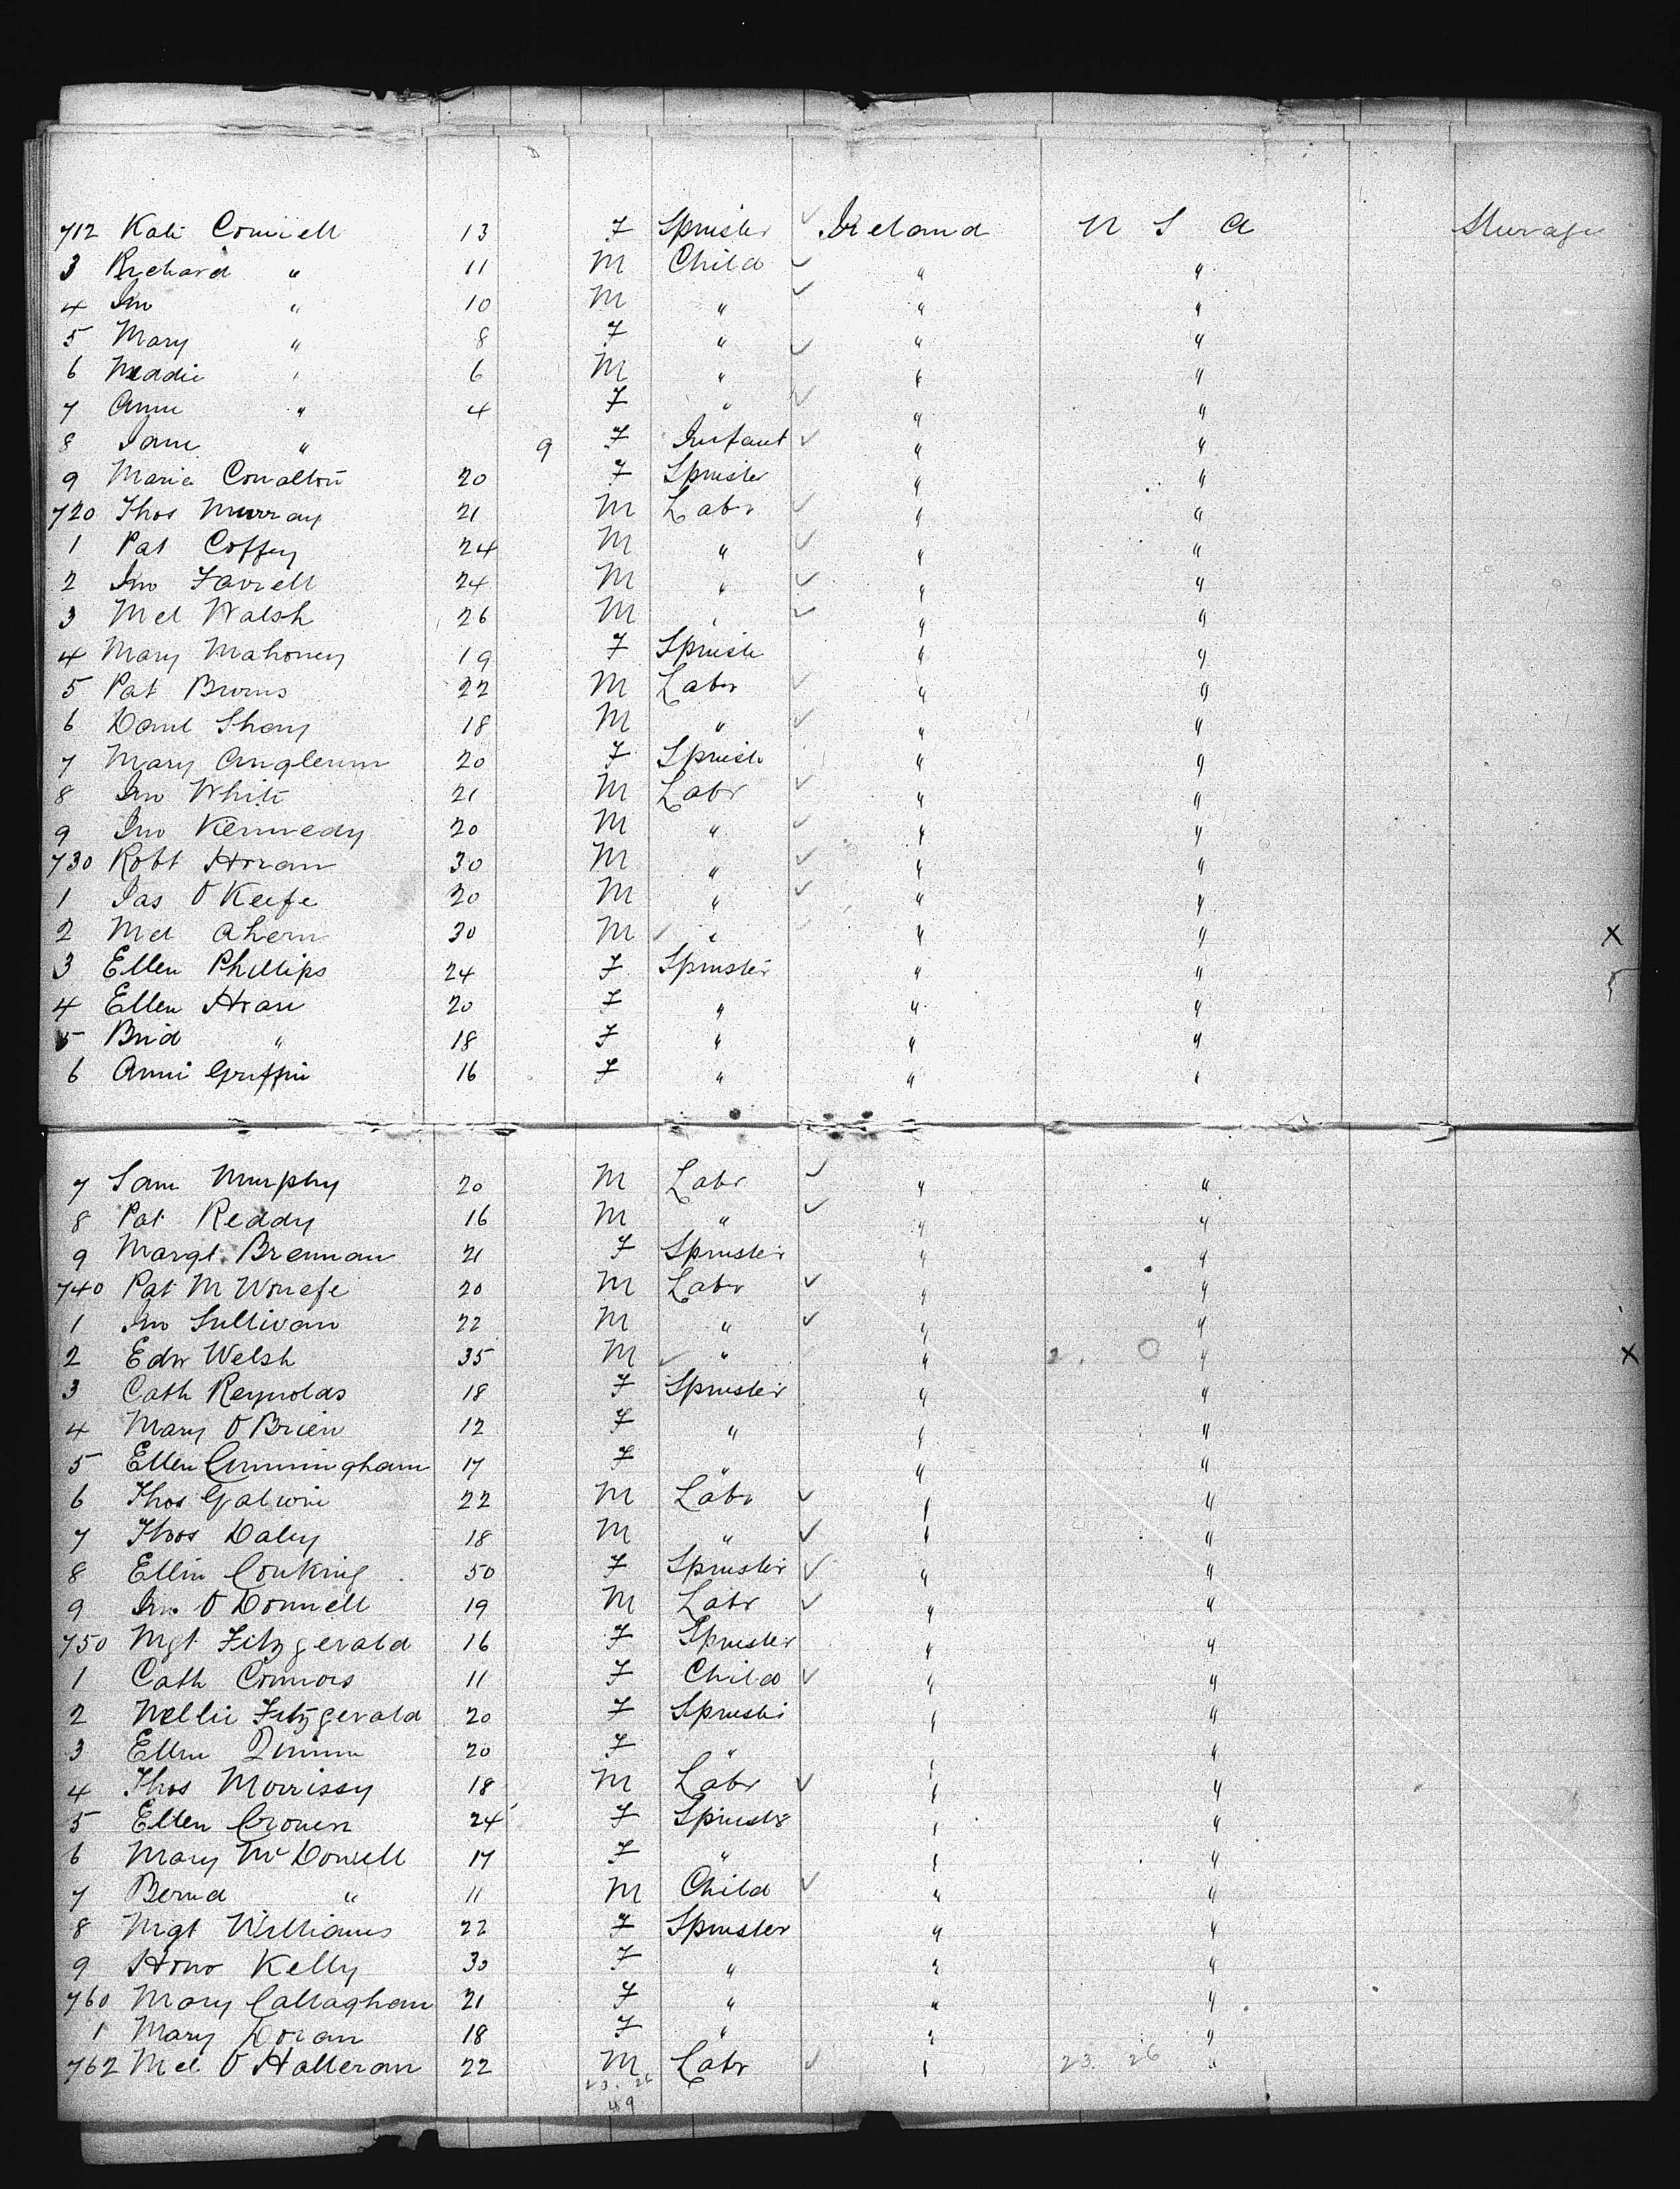 712 Kate Connell 13 F Spinster ✓ Ireland U S A Steerage
3 Richard " 11 M Child ✓ " "
4 Jno " 10 M " ✓ " "
5 Mary " 8 F " ✓ " "
6 Neddie " 6 M " ✓ " "
7 Anne " 4 F " ✓ " "
8 Jane " 9 F Infant ✓ " "
9 Maria 20 F Spinster " "
720 Thos Murray 21 M Labr ✓ " "
1 Pat Coffey 24 M " ✓ " "
2 Jno Farrell 24 M " ✓ " "
3 Mcl Walsh 26 M " ✓ " "
4 Mary Mahoney 19 F Spinste " "
5 Pat Burns 22 M Labr ✓ " "
6 Danl Shay 18 M " ✓ " "
7 Mary 20 F Spinste " "
8 Jno White 21 M Labr ✓ " "
9 Jno Kennedy 20 M " ✓ " "
730 Robt Horan 30 M " ✓ " "
1 Jas O Keefe 20 M " ✓ " "
2 Mcl Ahern 30 M ✓ " " " X
3 Ellen Phillips 24 F Spinster " "
4 Ellen Hoare 20 F " " "
5 Brid " 18 F " " "
6 Anni Griffin 16 F " " "
7 Sam Murphy 20 M Labr ✓ " "
8 Pat Reddy 16 M " ✓ " "
9 Margt Brennan 21 F Spinster " "
740 Pat 20 M Labr ✓ " "
1 Jno Sullivan 22 M " ✓ " "
2 Edw Welsh 35 M ✓ " " " X
3 Cath Reynolds 18 F Spinster " "
4 Mary O Brien 12 F " " "
5 Ellen Cunningham 17 F " " "
6 Thos Galwin 22 M Labr ✓ " "
7 Thos Daley 18 M " ✓ " "
8 Ellen 50 F Spinster ✓ " "
9 Jno O Donnell 19 M Labr ✓ " "
750 Mgt Fitzgerald 16 F Spinster " "
1 Cath Connors 11 F Child ✓ " "
2 Nellie Fitzgerald 20 F Spinster " "
3 Ellen Quinn 20 F " " "
4 Thos Morrissy 18 M Labr ✓ " "
5 Ellen Cronen 24 F Spinster " "
6 Mary 17 F " " "
7 Bernd " 11 M Child ✓ " "
8 Mgt Williams 22 F Spinster " "
9 Hono Kelly 30 F " " "
760 Mary Callaghan 21 F " " "
1 Mary Doran 18 F " " "
762 Mcl O Halleran 22 M Labr ✓ " 23. 26 "
23. 26
49